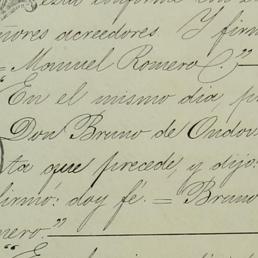 esta conforme en
nores acreedores. Y firm
= Manuel Romero C.o" —
"En el mismo dia, p
Don Bruno de Ondov
ta que precede, y dijo
firmó: doy fé. = Bruno
mero." —
"E